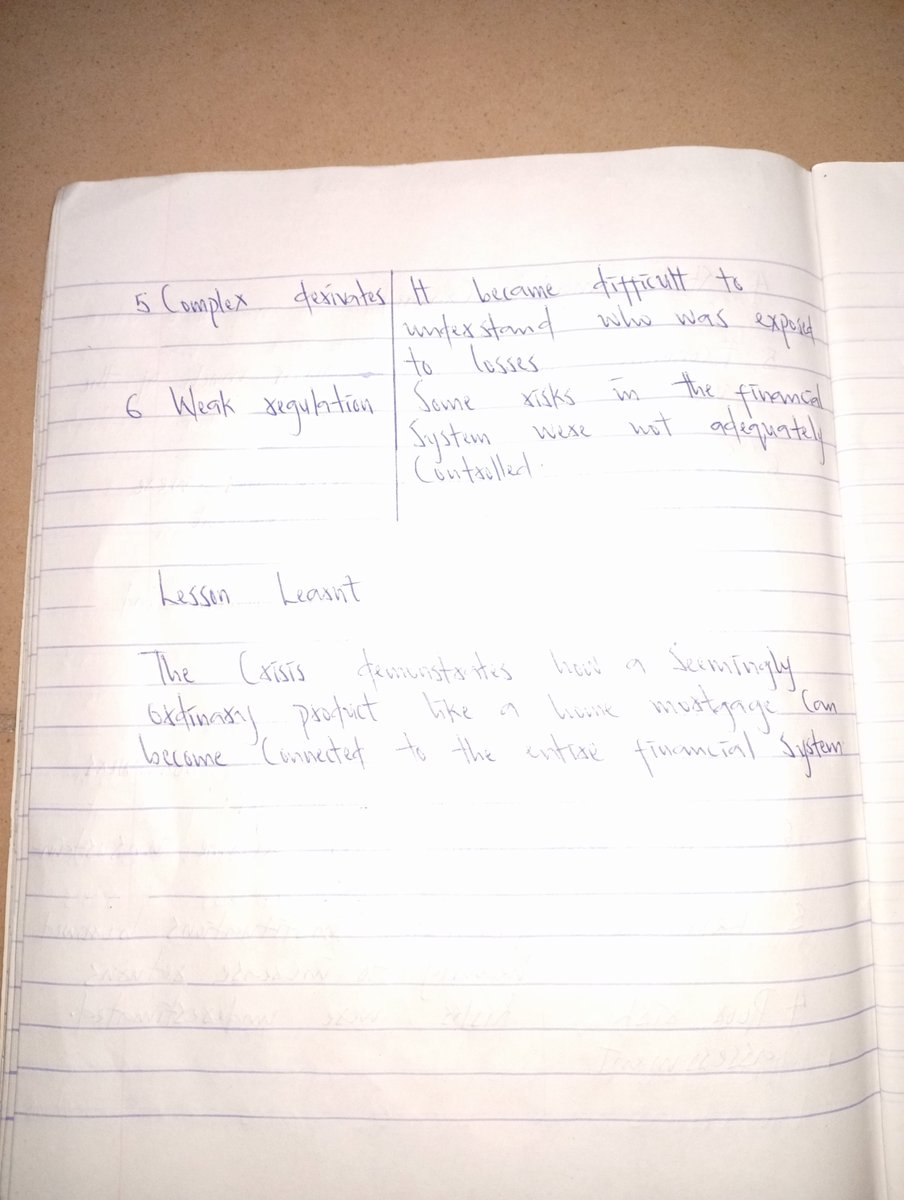 5 Complex derivates It became difficult to
understand who was exposed
to losses
6 Weak regulation Some risks in the financial
System were not adequately
Controlled.
Lesson Learnt
The Crisis demonstrates how a Seemingly
Ordinary product like a home mortgage Can
become Connected to the entire financial System